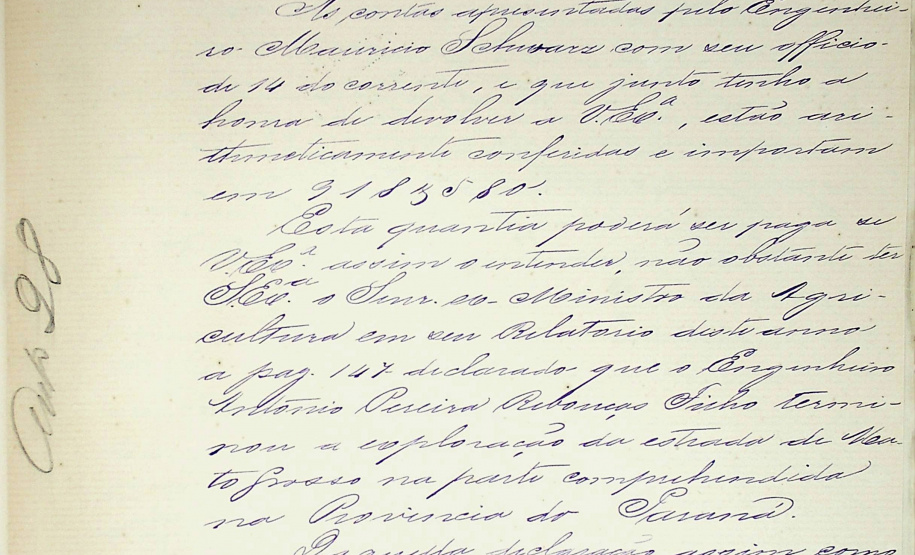 As contas apresentadas pelo Engenhei-
ro Mauricio Schwarz com seu officio
de 14 do corrente, e que junto tenho a
honra de devolver a V. Exª., estão ari-
thmeticamente conferidas e importam
em 918$580.
Esta quantia poderá ser paga se
V. Exª. assim o entender, não obstante ter
S. Exª. o Snr. ex-Ministro da Agri-
cultura em seu Relatorio deste anno
a pag. 147 declarado que o Engenheiro
Antônio Pereira Rebouças Filho termi-
nou a exploração da estrada de Ma-
to Grosso na parte comprehendida
na Provincia do Paraná.
Daquella declaração assim como
28